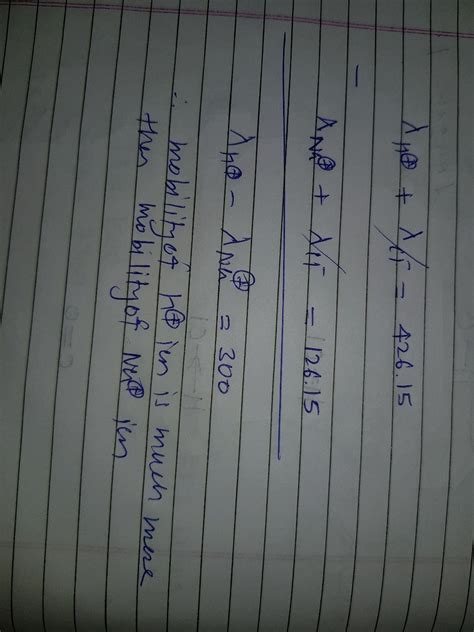 λH⊕ + λCl⁻ = 426.15
− λNa⊕ + λCl⁻ = 126.15
λH⊕ − λNa⊕ = 300
∴ mobility of H⊕ ion is much more
then mobility of Na⊕ ion